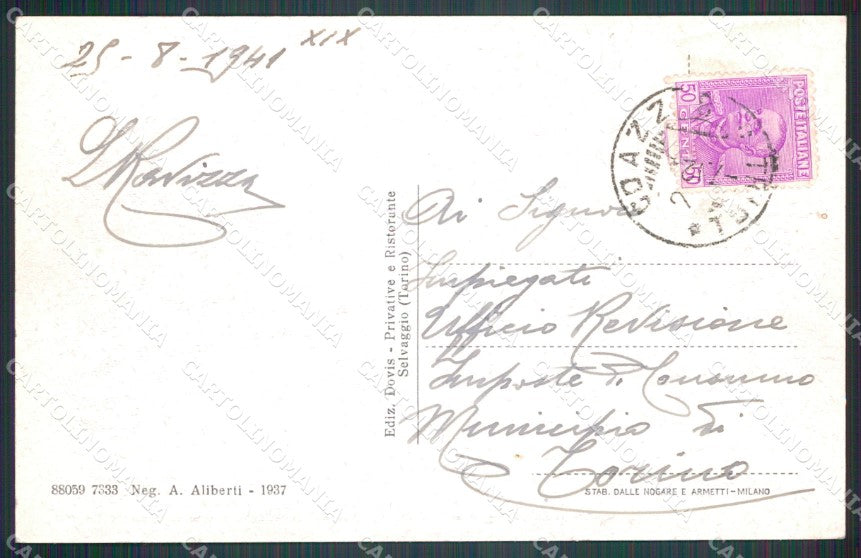 25 - 8 - 1941 XIX
Ravizza
POSTE ITALIANE
50 CENT. 50
COAZZE
TORINO
Ai Signori
Impiegati
Ufficio Revisione
Imposte di Consumo
Municipio di
Torino
Ediz. Dovis - Privative e Ristorante
Selvaggio (Torino)
88059 7333 Neg. A. Aliberti - 1937
STAB. DALLE NOGARE E ARMETTI-MILANO
CARTOLINOMANIA